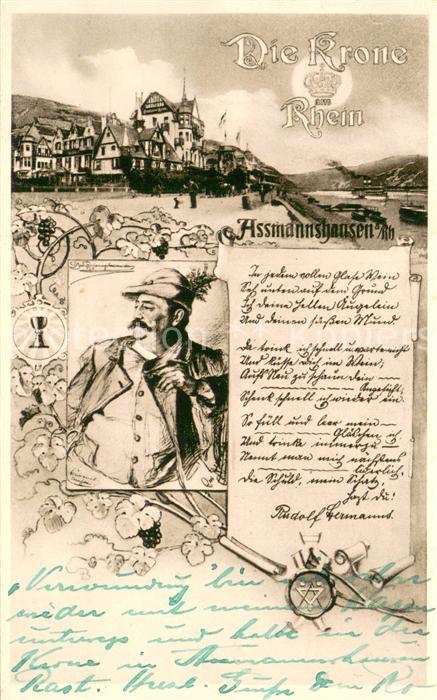 Die Krone
Rhein
Assmannshausen a/Rh
In jedem vollen Glase Wein
Seh unten auf dem Grund
Ich deine hellen Äugelein
Und deinen süßen Mund
Da trink ich schnell u. warte nicht
Und küsse dich im Wein,
Aufs Neu zu schaun dein
Angesicht,
Schenk schnell ich wieder ein.
So füll und leer mein
Gläschen ich
Und trinke immerzu
Nennt man mich nächstens
liederlich,
Die Schuld, mein Schatz,
hast du!
Rudolf Hermanns
"Verwundung" bin
wieder mit
unterwegs und halte in der
Krone in Assmannshausen
Rast. Herzl. Grüße Dein